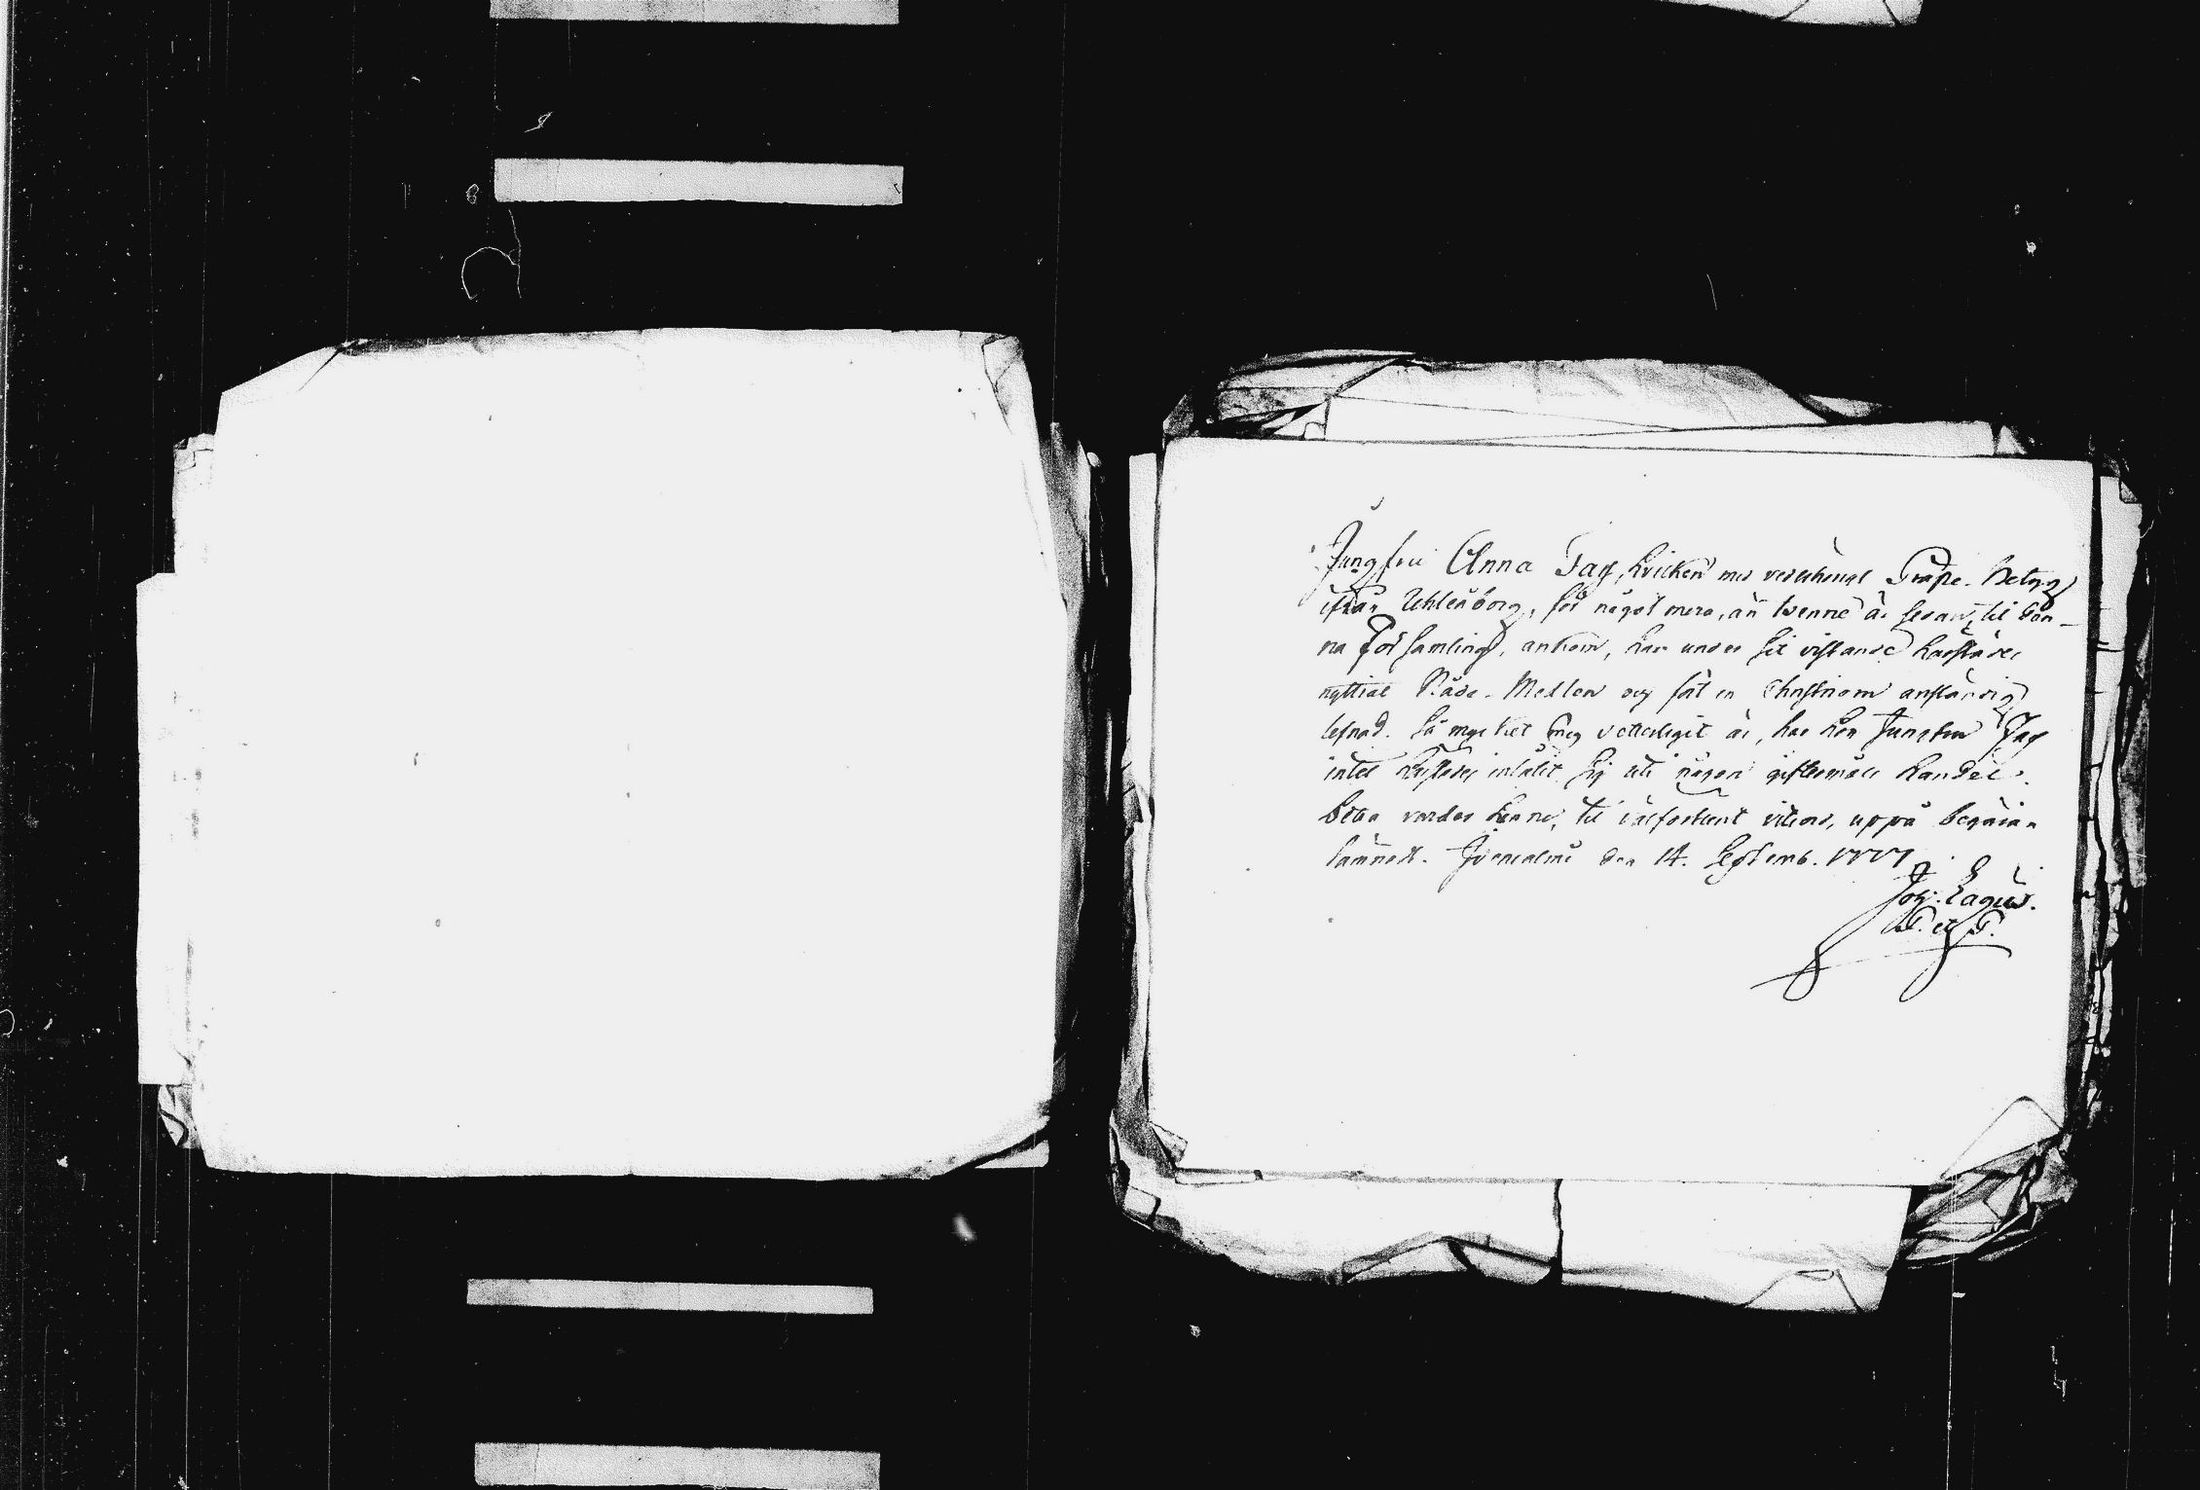 Jungfru Anna Fag, hvilken med vederbörligt Präste-Betyg
ifrån Uhleåborg, för något mera, än tvenne år sedan, til den-
na Församling, ankom, har under sit vistande härstädes
nyttiat Nåde-Medlen och fört en Christnom anständig
lefnad. Så mycket mig vetterligit är, har hon Jungfru Fag
intet härstädes inlåtit sig uti någon giftermåls handel.
Detta varder henne, til välförtient vitsord, uppå begäran
lämnadt. den 14. Septemb. 1777
Joh. Lagus.
P. et P.